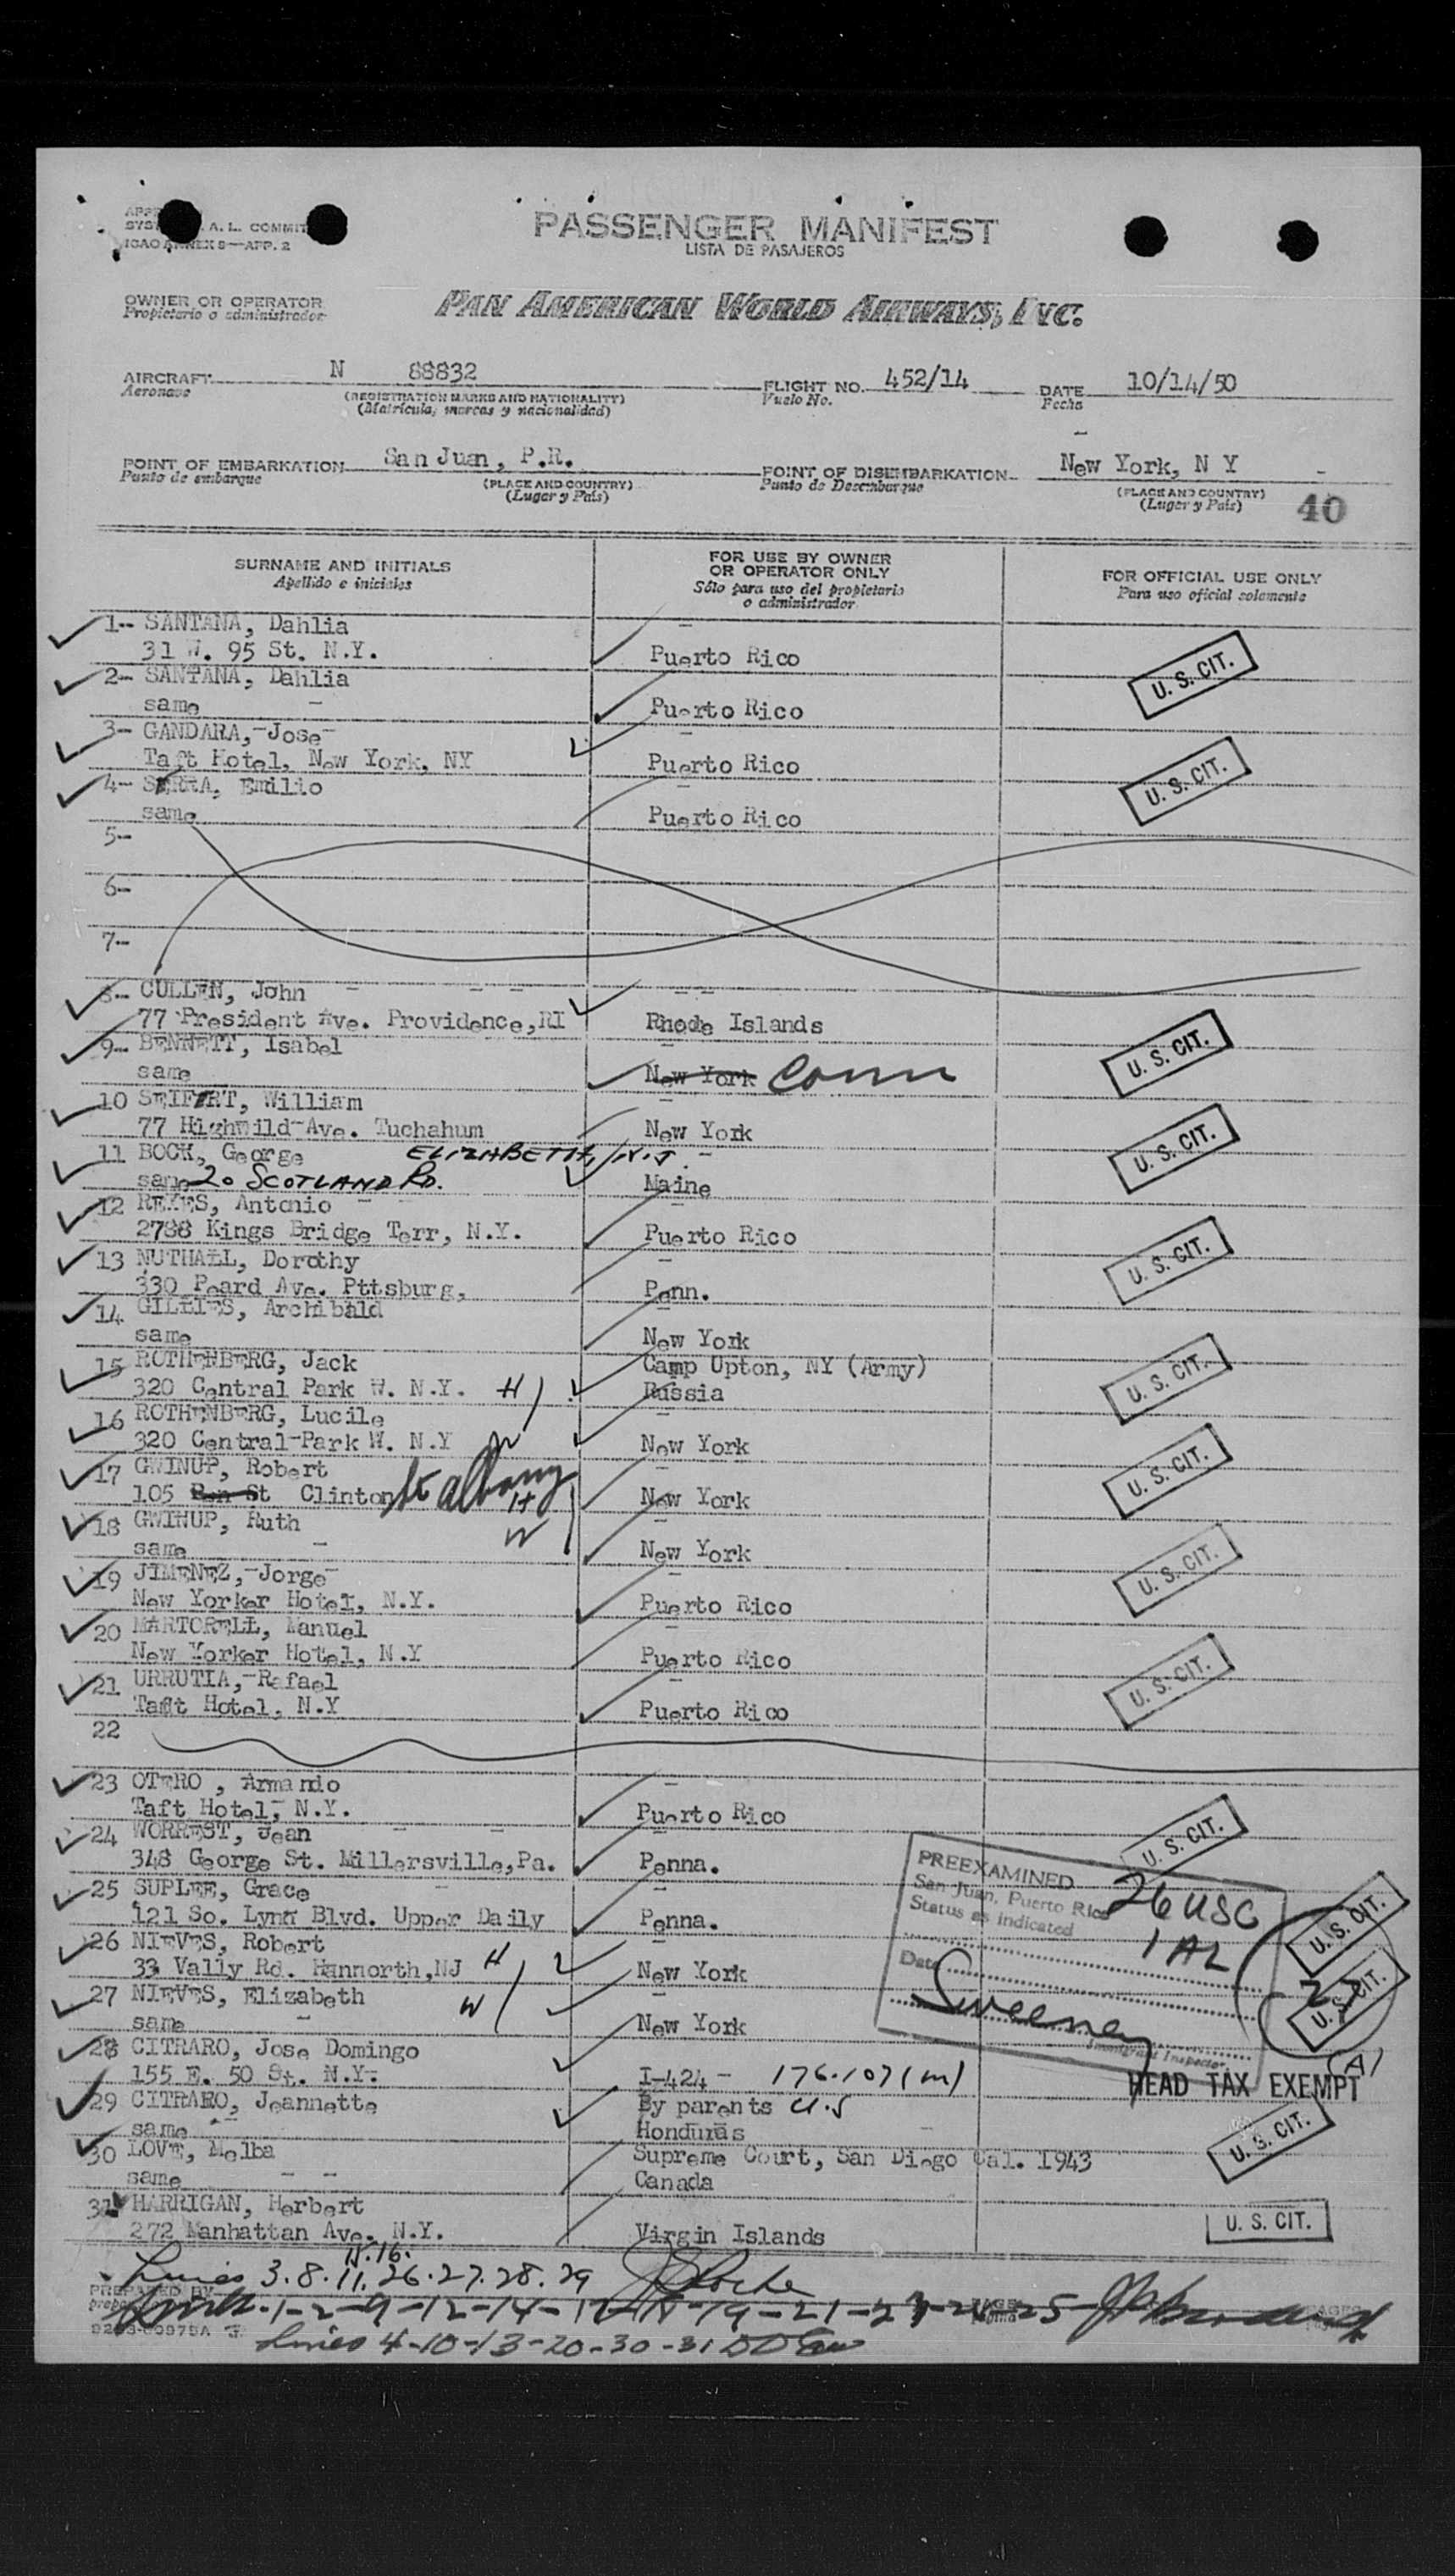 SYS A. L. COMMIT
ICAO ANNEX 9—APP. 2
PASSENGER MANIFEST
LISTA DE PASAJEROS
OWNER OR OPERATOR
Propietario o administrador
PAN AMERICAN WORLD AIRWAYS, INC.
AIRCRAFT N 88832
Aeronave
(REGISTRATION MARKS AND NATIONALITY)
(Matrícula, marcas y nacionalidad)
FLIGHT NO. 452/14
Vuelo No.
DATE 10/14/50
Fecha
POINT OF EMBARKATION San Juan, P.R.
Punto de embarque
(PLACE AND COUNTRY)
(Lugar y País)
POINT OF DISEMBARKATION New York, N Y
Punto de Desembarque
(PLACE AND COUNTRY)
(Lugar y País)
40
SURNAME AND INITIALS
Apellido e iniciales
FOR USE BY OWNER
OR OPERATOR ONLY
Sólo para uso del propietario
o administrador
FOR OFFICIAL USE ONLY
Para uso oficial solamente
1-- SANTANA, Dahlia
31 W. 95 St. N.Y. Puerto Rico U. S. CIT.
2-- SANTANA, Dahlia
same Puerto Rico
3-- GANDARA, Jose
Taft Hotel, New York, NY Puerto Rico U. S. CIT.
4-- SERRA, Emilio
same Puerto Rico
5--
6--
7--
8-- CULLEN, John
77 President Ave. Providence,RI Rhode Islands U. S. CIT.
9-- BENNETT, Isabel
same New York Conn
10 SEIFERT, William
77 Highwild Ave. Tuchahum New York U. S. CIT.
11 BOCK, George ELIZABETH, N.J.
same 20 SCOTLAND RD. Maine
12 REYES, Antonio
2788 Kings Bridge Terr, N.Y. Puerto Rico U. S. CIT.
13 NUTHALL, Dorothy
330 Peard Ave. Pttsburg, Penn.
14 GILLIES, Archibald
same New York
15 ROTHENBERG, Jack Camp Upton, NY (Army)
320 Central Park W. N.Y. H Russia U. S. CIT.
16 ROTHENBERG, Lucile
320 Central Park W. N.Y W New York
17 GWINUP, Robert U. S. CIT.
105 Ben St Clinton St Albany H New York
18 GWINUP, Ruth W
same New York U. S. CIT.
19 JIMENEZ, Jorge
New Yorker Hotel, N.Y. Puerto Rico
20 MARTORELL, Manuel
New Yorker Hotel, N.Y Puerto Rico U. S. CIT.
21 URRUTIA, Rafael
Taft Hotel, N.Y Puerto Rico
22
23 OTERO , Armando
Taft Hotel, N.Y. Puerto Rico
24 WORREST, Jean U. S. CIT.
348 George St. Millersville,Pa. Penna.
25 SUPLEE, Grace
121 So. Lynn Blvd. Upper Daily Penna.
26 NIEVES, Robert U. S. CIT.
33 Vally Rd. Hannorth,NJ H New York
27 NIEVES, Elizabeth W
same New York U. S. CIT.
PREEXAMINED
San Juan, Puerto Rico
Status as indicated
26 USC
1 AL
27
Date
Sweeney
Immigrant Inspector
28 CITRARO, Jose Domingo
155 E. 50 St. N.Y. I-424 - 176.107(m) (A)
HEAD TAX EXEMPT
29 CITRARO, Jeannette By parents U.S
same Honduras U. S. CIT.
30 LOVE, Melba Supreme Court, San Diego Cal. 1943
same Canada
31 HARRIGAN, Herbert
272 Manhattan Ave. N.Y. Virgin Islands U. S. CIT.
15.16.
Lines 3.8.11.26.27.28.29
PREPARED BY
1-2-9-12-14-17-18-19-21-23-24-25
Lines 4-10-13-20-30-31